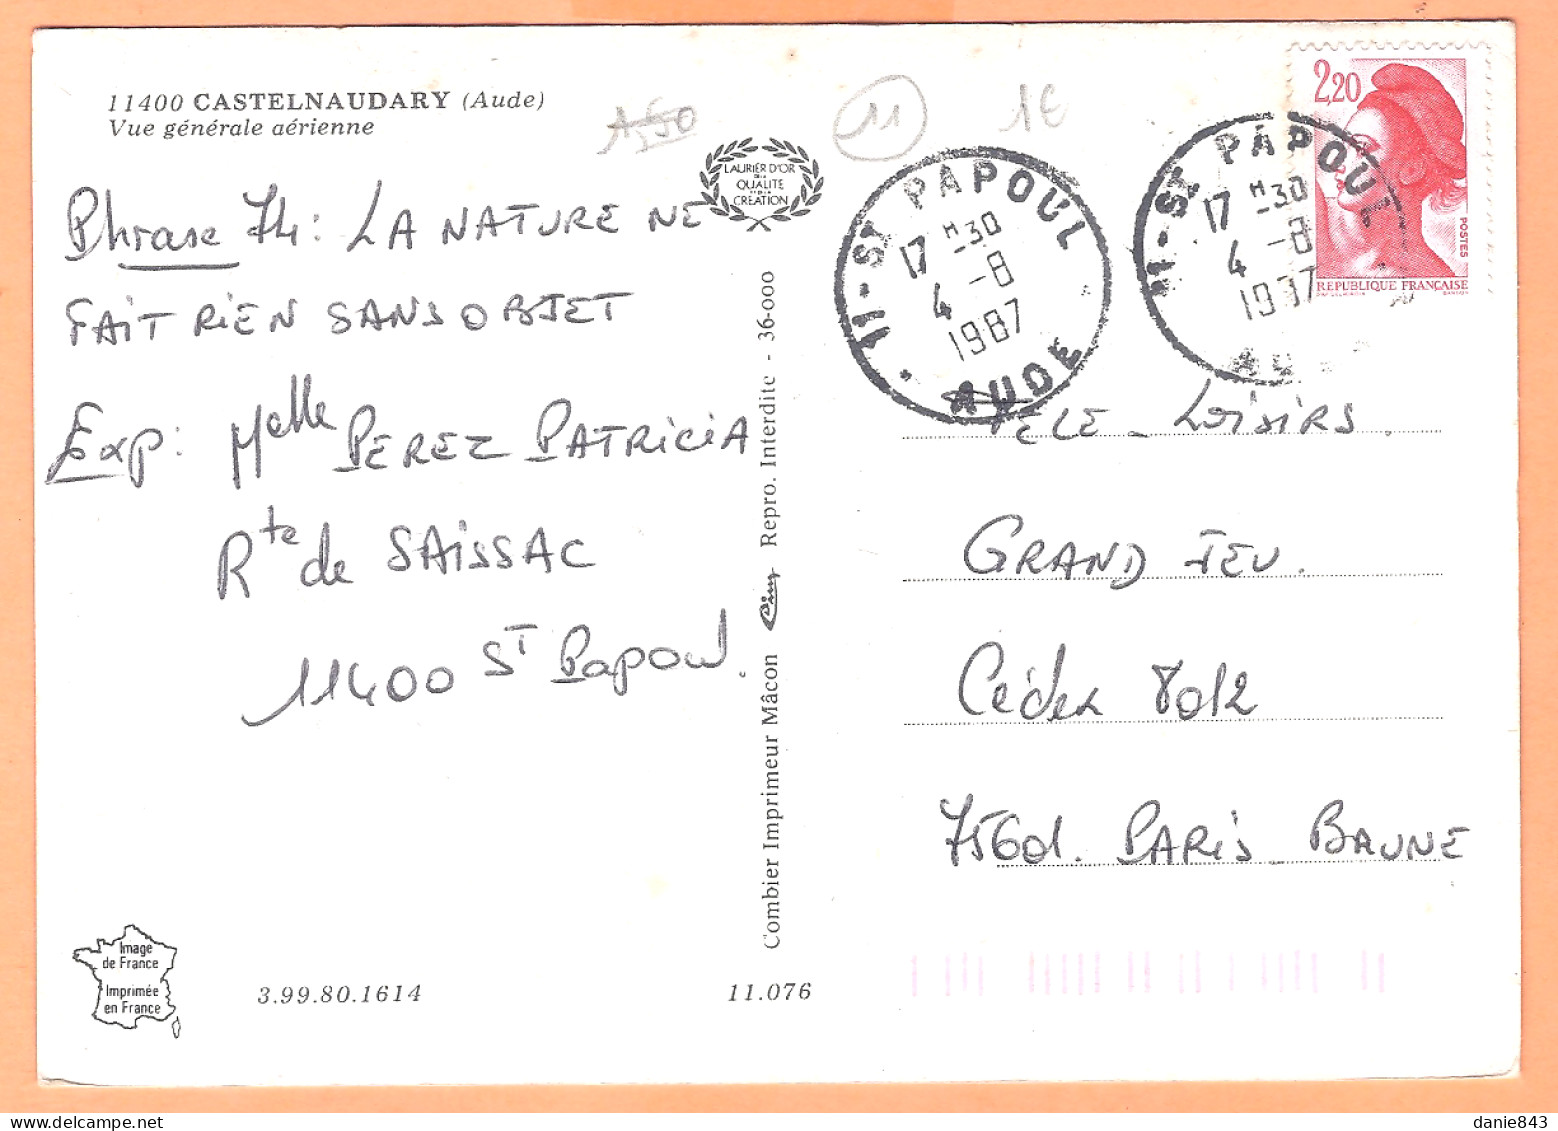 11400 CASTELNAUDARY (Aude)
Vue générale aérienne
11
1€
LAURIER D'OR
DE LA
QUALITÉ
ET DE LA
CRÉATION
Phrase 74: LA NATURE NE
FAIT RIEN SANS OBJET
Exp: Melle PEREZ PATRICIA
Rte de SAISSAC
11400 ST Papoul.
Combier Imprimeur Mâcon Cim Repro. Interdite - 36-000
11-ST PAPOUL
17 H 30
4 -8
1987
AUDE
11-ST PAPOUL
17 H 30
4 -8
1987
AUDE
2,20
POSTES
REPUBLIQUE FRANÇAISE
TELE-LOISIRS.
GRAND JEU.
Cédex 7012
75601. PARIS BRUNE
Image
de France
Imprimée
en France
3.99.80.1614
11.076
danie843